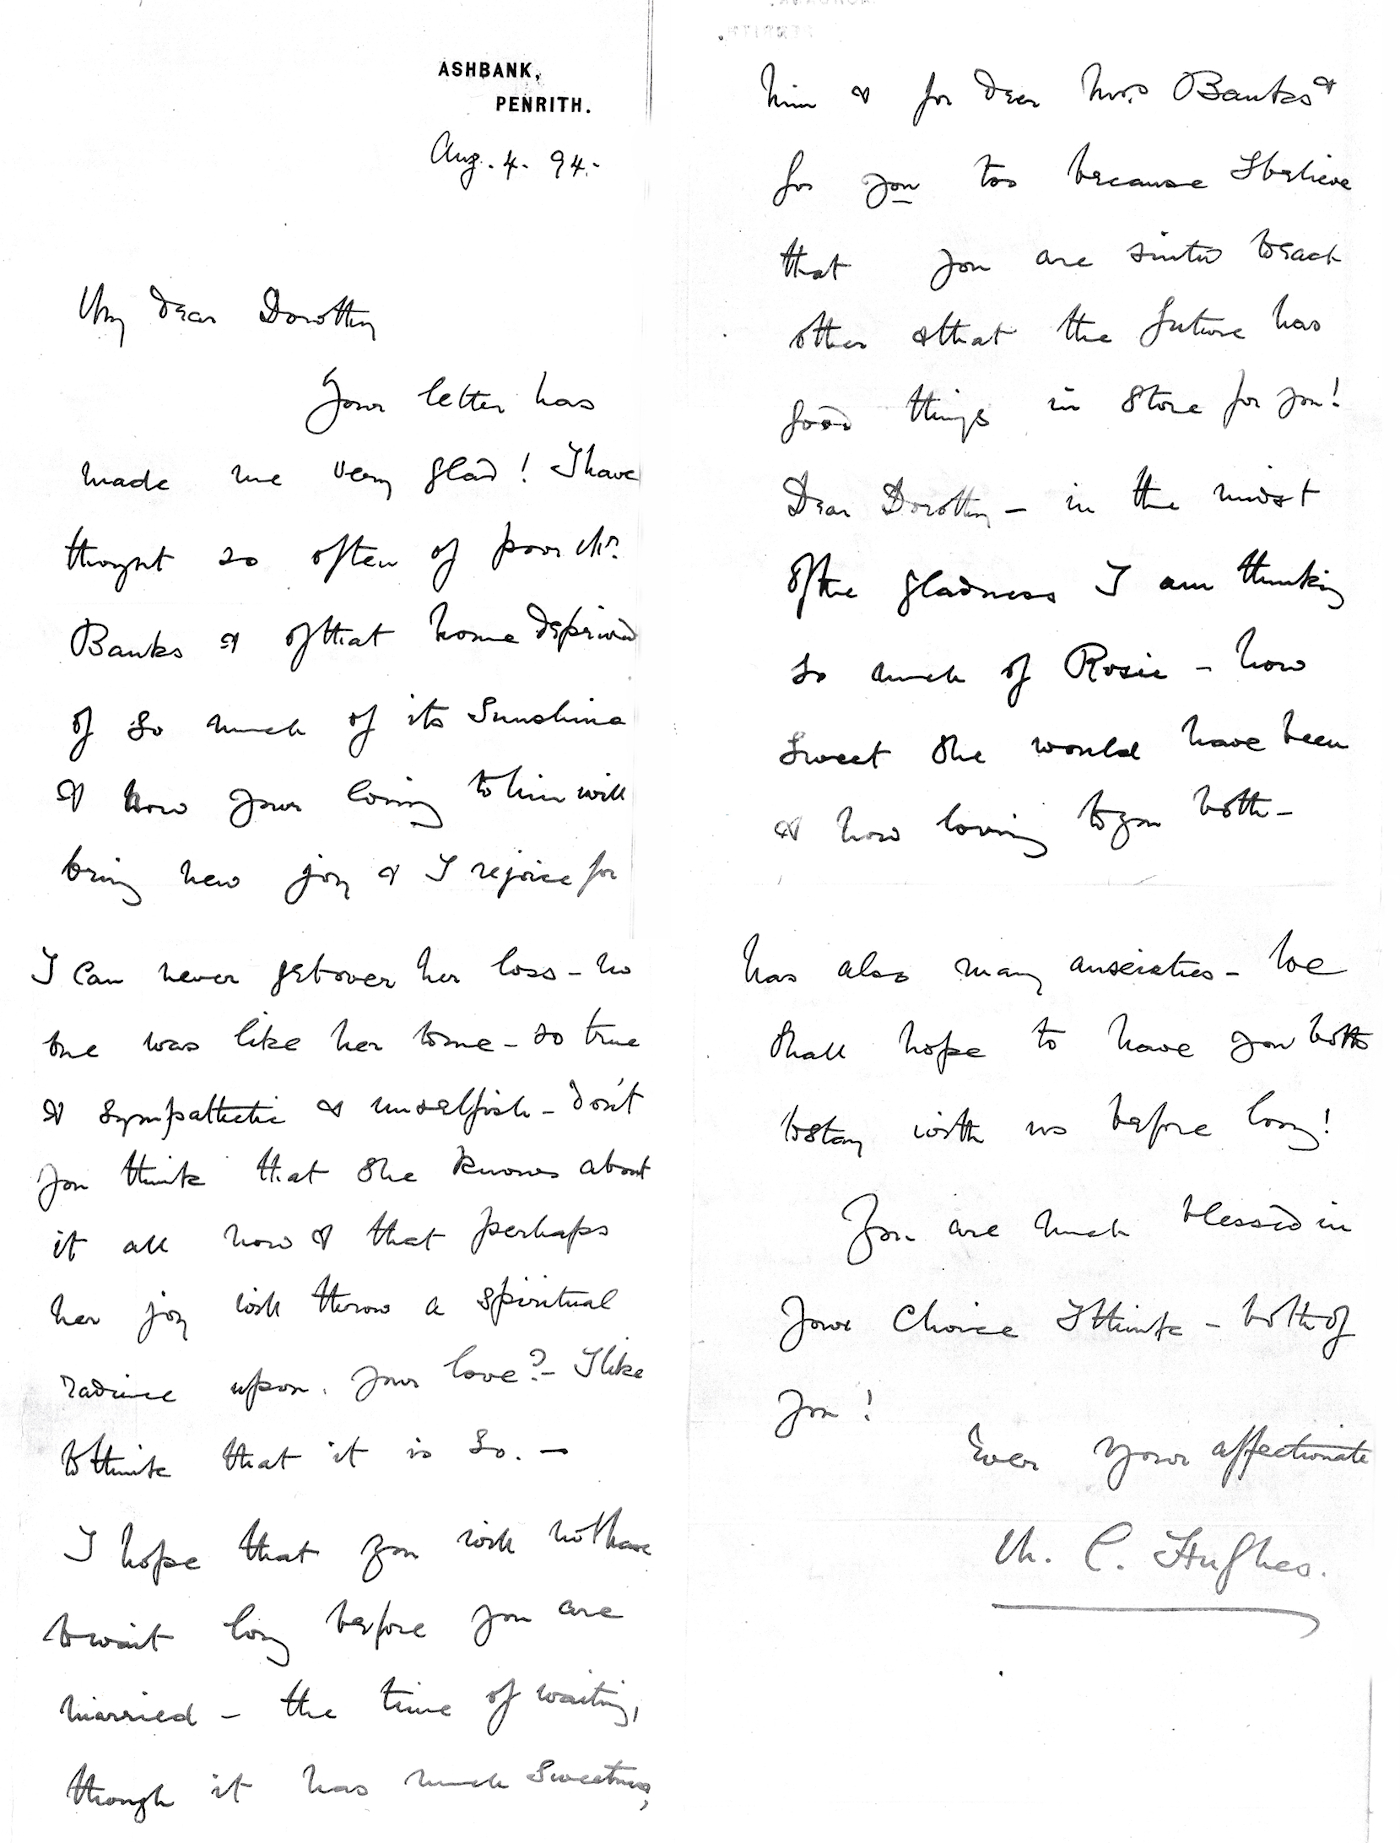 ASHBANK,
PENRITH.
Aug. 4. 94.
My dear Dorothy
Your letter has
made me very glad! I have
thought so often of poor Mr.
Banks & of that home deprived
of so much of its sunshine
& how your loving to him will
bring new joy & I rejoice for
him & for dear Mrs Banks &
for you too because I believe
that you are suited to each
other & that the future has
good things in store for you!
Dear Dorothy – in the midst
of the gladness I am thinking
so much of Rosie – how
sweet she would have been
& how loving to you both –
I can never get over her loss – no
one was like her to me – so true
& sympathetic & unselfish – don't
you think that she knows about
it all now & that perhaps
her joy will throw a spiritual
radince upon your love? – I like
to think that it is so. –
I hope that you will not have
to wait long before you are
married – the time of waiting,
though it has much sweetness,
has also many anxieties – We
shall hope to have you both
to stay with us before long!
You are much blessed in
your choice I think – both of
you!
Ever your affectionate
M. C. Hughes.